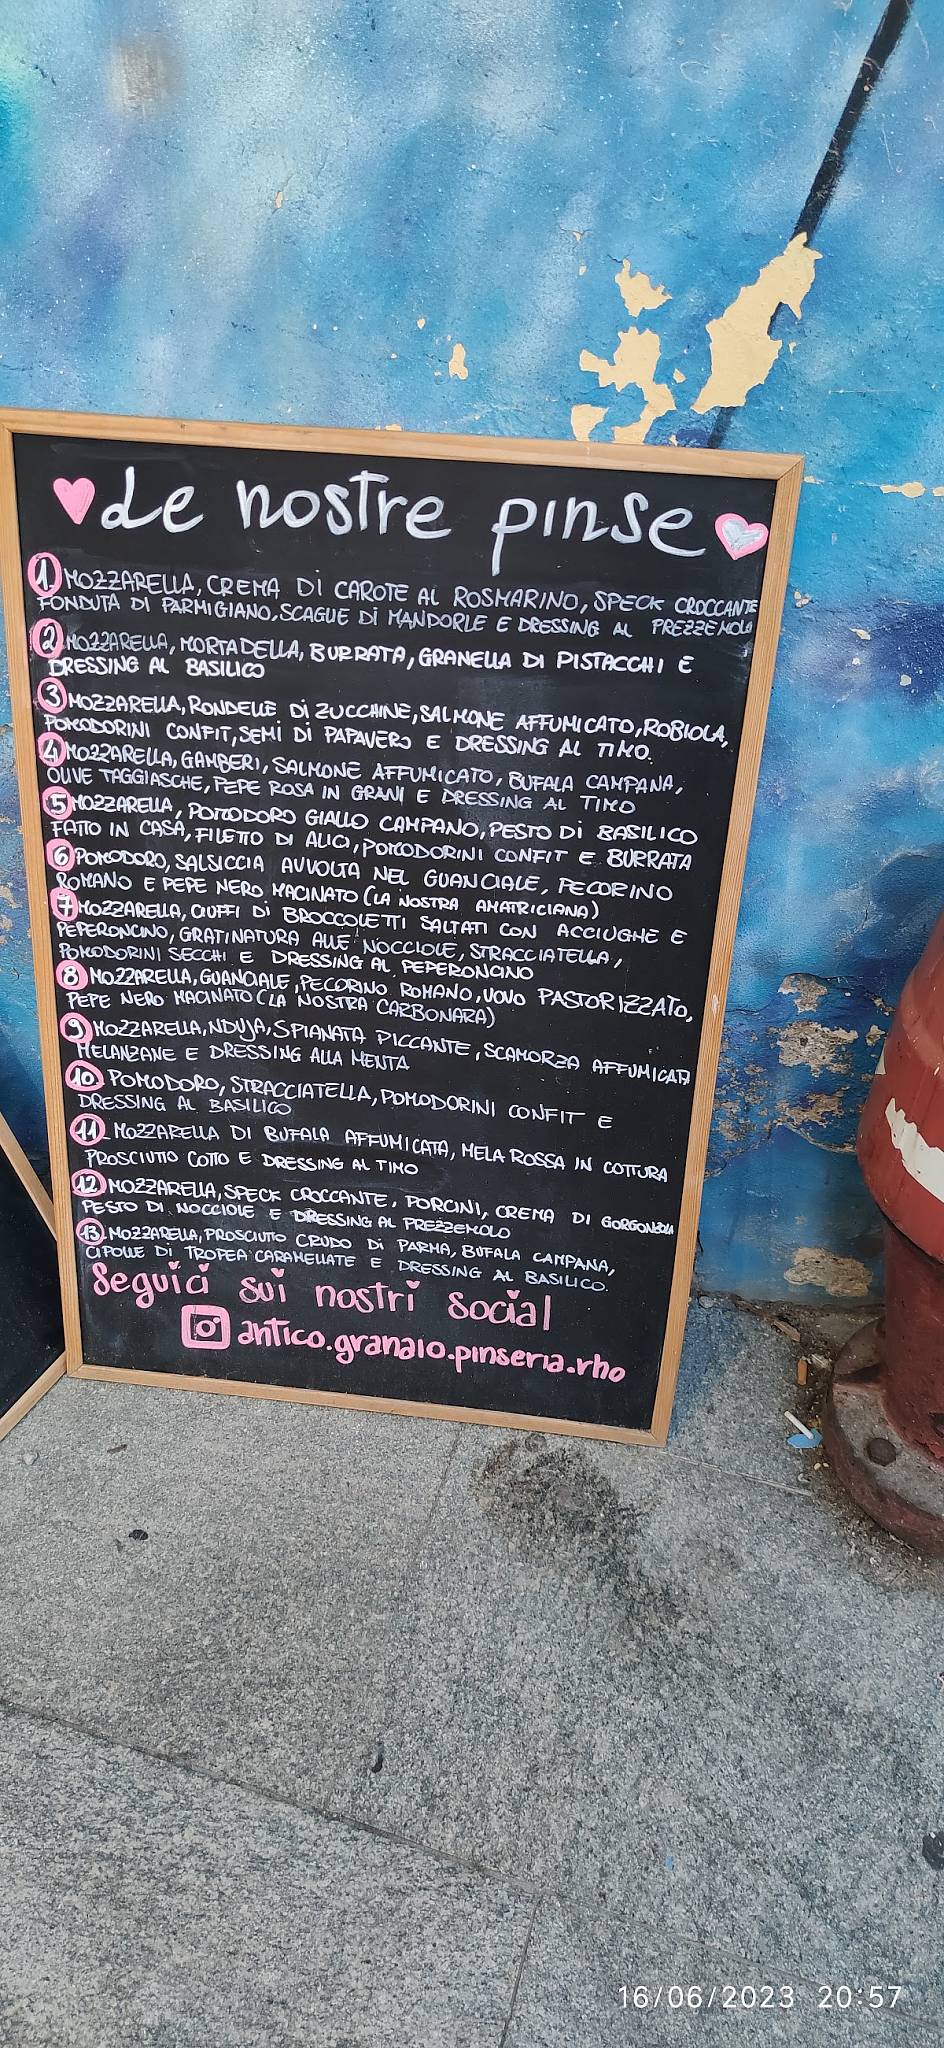 Le nostre pinse
1 MOZZARELLA, CREMA DI CAROTE AL ROSMARINO, SPECK CROCCANTE
FONDUTA DI PARMIGIANO, SCAGLIE DI MANDORLE E DRESSING AL PREZZEMOLO
2 MOZZARELLA, MORTADELLA, BURRATA, GRANELLA DI PISTACCHI E
DRESSING AL BASILICO
3 MOZZARELLA, RONDELLE DI ZUCCHINE, SALMONE AFFUMICATO, ROBIOLA,
POMODORINI CONFIT, SEMI DI PAPAVERO E DRESSING AL TIMO.
4 MOZZARELLA, GAMBERI, SALMONE AFFUMICATO, BUFALA CAMPANA,
OLIVE TAGGIASCHE, PEPE ROSA IN GRANI E DRESSING AL TIMO
5 MOZZARELLA, POMODORO GIALLO CAMPANO, PESTO DI BASILICO
FATTO IN CASA, FILETTO DI ALICI, POMODORINI CONFIT E BURRATA
6 POMODORO, SALSICCIA AVVOLTA NEL GUANCIALE, PECORINO
ROMANO E PEPE NERO MACINATO (LA NOSTRA AMATRICIANA)
7 MOZZARELLA, CIUFFI DI BROCCOLETTI SALTATI CON ACCIUGHE E
PEPERONCINO, GRATINATURA ALLE NOCCIOLE, STRACCIATELLA,
POMODORINI SECCHI E DRESSING AL PEPERONCINO
8 MOZZARELLA, GUANCIALE, PECORINO ROMANO, UOVO PASTORIZZATO,
PEPE NERO MACINATO (LA NOSTRA CARBONARA)
9 MOZZARELLA, NDUJA, SPIANATA PICCANTE, SCAMORZA AFFUMICATA
MELANZANE E DRESSING ALLA MENTA
10 POMODORO, STRACCIATELLA, POMODORINI CONFIT E
DRESSING AL BASILICO
11 MOZZARELLA DI BUFALA AFFUMICATA, MELA ROSSA IN COTTURA
PROSCIUTTO COTTO E DRESSING AL TIMO
12 MOZZARELLA, SPECK CROCCANTE, PORCINI, CREMA DI GORGONZOLA
PESTO DI NOCCIOLE E DRESSING AL PREZZEMOLO
13 MOZZARELLA, PROSCIUTTO CRUDO DI PARMA, BUFALA CAMPANA,
CIPOLLE DI TROPEA CARAMELLATE E DRESSING AL BASILICO.
Seguici sui nostri social
antico.granaio.pinseria.rho
16/06/2023 20:57